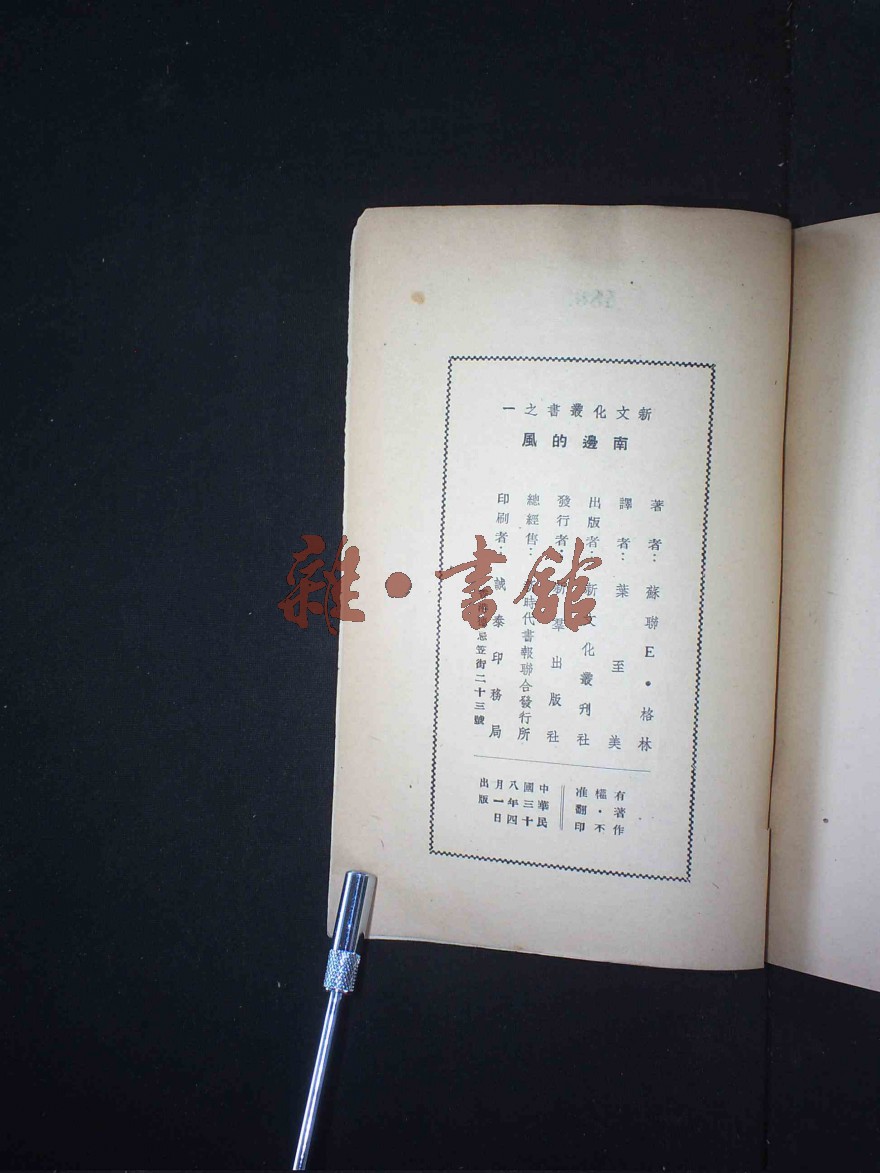 新文化叢書之一
南邊的風
著者：蘇聯E·格林
譯者：葉至美
出版者：新文化叢刊社
發行者：新羣出版社
總經售：時代書報聯合發行所
印刷者：誠泰印務局
忌笠街二十三號
有著作
權·不
准翻印
中華民
國三十
八年四
月一日
出版
雜·書館